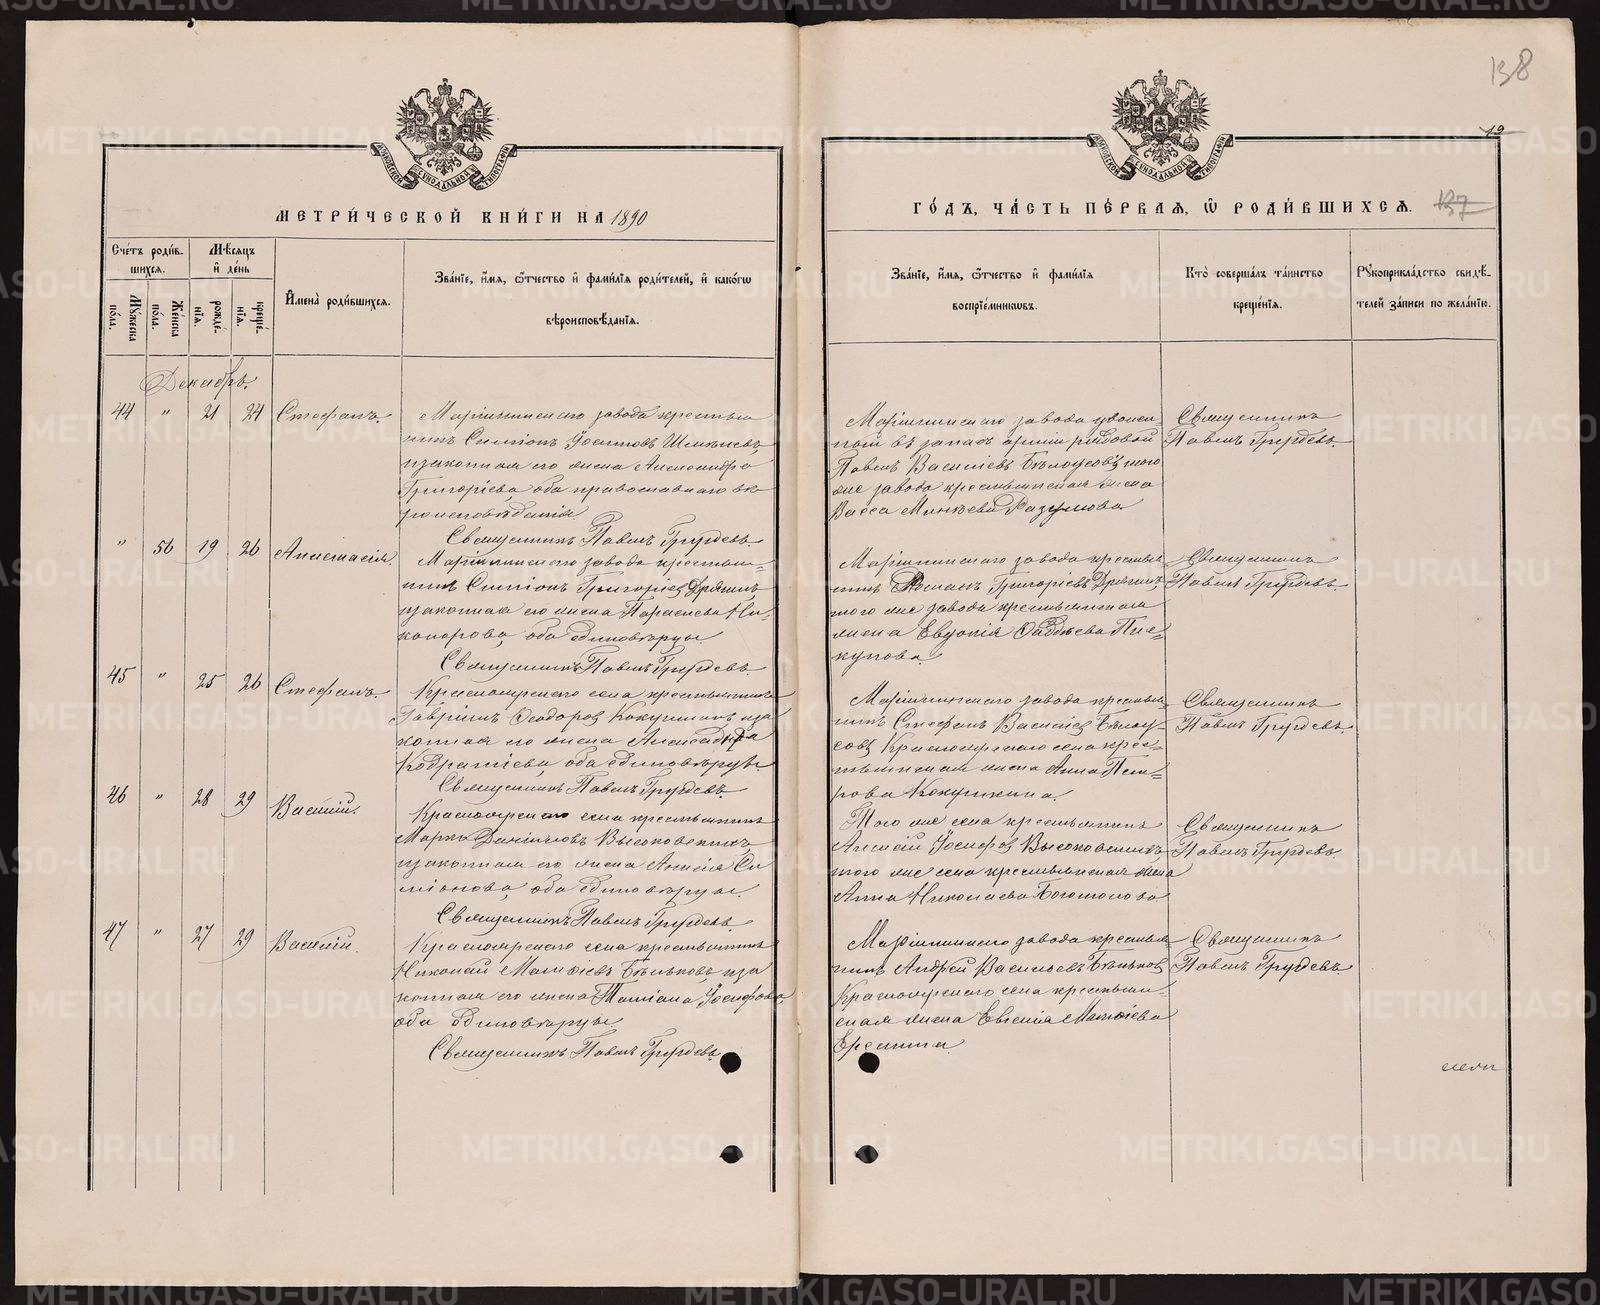 138
19
МОСКОВСКОЙ СѴНОДАЛЬНОЙ ТИПОГРАФІИ
МЕТРИ́ЧЕСКОЙ КНИ́ГИ НА 1890
МОСКОВСКОЙ СѴНОДАЛЬНОЙ ТИПОГРАФІИ
ГО́ДЪ, ЧА́СТЬ ПЕ́РВАЯ, Ѡ РОДИ́ВШИХСЯ. 137
Сче́тъ роди́в-
шихся.
Мꙋжеска по́ла.
Же́нска по́ла.
Мѣ́сяцъ
и҆ де́нь
рожде́-нія.
креще́-нія.
И҆мена̀ роди́вшихся.
Зва́ніе, и҆́мя, ѻ҆́тчество и҆ фами́лія роди́телей, и҆ како́гѡ
вѣроисповѣ́данія.
Зва́ніе, и҆́мя, ѻ҆́тчество и҆ фами́лія
воспріе́мникѡвъ.
Кто̀ соверша́лъ та́инство
креще́нія.
Рꙋкоприкла́дство свидѣ́-
телей за́писи по жела́нію.
Декабрь.
44 " 21 24 Стефанъ.
Маріинскаго завода крестья
нинъ Симіонъ Іосифовъ
изаконная его жена Александра
Григоріева, оба православнаго вѣ
роисповѣданія.
Священникъ Павелъ Груздевъ.
Маріинскаго завода уволен-
ный въ запасъ арміи рядовой
Павелъ Василіевъ Бѣлоусовъ, того
же завода крестьянская жена
Васса Разумова
Священникъ
Павелъ Груздевъ.
" 56 19 26 Анастасія.
Маріинскаго завода крестьян-
нинъ Симіонъ Григоріевъ
изаконная его жена Параскева Ни-
канорова, оба единовѣрцы.
Священникъ Павелъ Груздевъ
Маріинскаго завода крестья-
нинъ Романъ Григоріевъ
того же завода крестьянская
жена Евдокія Фаддѣева Пис-
кунова.
Священникъ
Павелъ Груздевъ.
45 " 25 26 Стефанъ.
Красноярскаго села крестьянинъ
Гавріилъ Ѳеодоровъ Кокушкинъ иза
конная его жена Александра
Кодратіева, оба единовѣрцы.
Священникъ Павелъ Груздевъ
Маріинскаго завода крестья-
нинъ Стефанъ Василіевъ Бѣлоу-
совъ, Красноярскаго села крес-
тьянская жена Анна Пет-
рова Кокушкина.
Священникъ
Павелъ Груздевъ.
46 " 28 29 Василій.
Красноярскаго села крестьянинъ
Марко Даніиловъ Высоковскихъ,
изаконная его жена Анисія Си
міонова, оба единовѣрцы.
Священникъ Павелъ Груздевъ
Того же села крестьянинъ
Алексій Іосифовъ Высоковскихъ,
того же села крестьянская жена
Анна Николаева Богомолова
Священникъ
Павелъ Груздевъ.
47 " 27 29 Василій.
Красноярскаго села крестьянинъ
Николай Матѳіевъ Бѣньковъ иза
конная его жена Татіана Іосифова
оба единовѣрцы.
Священникъ Павелъ Груздевъ
Маріинскаго завода крестья-
нинъ Андрей Васильевъ Бѣньковъ
Красноярскаго села крестьян-
ская жена Евгенія Матѳіева
Еремина
Священникъ
Павелъ Груздевъ
METRIKI.GASO-URAL.RU